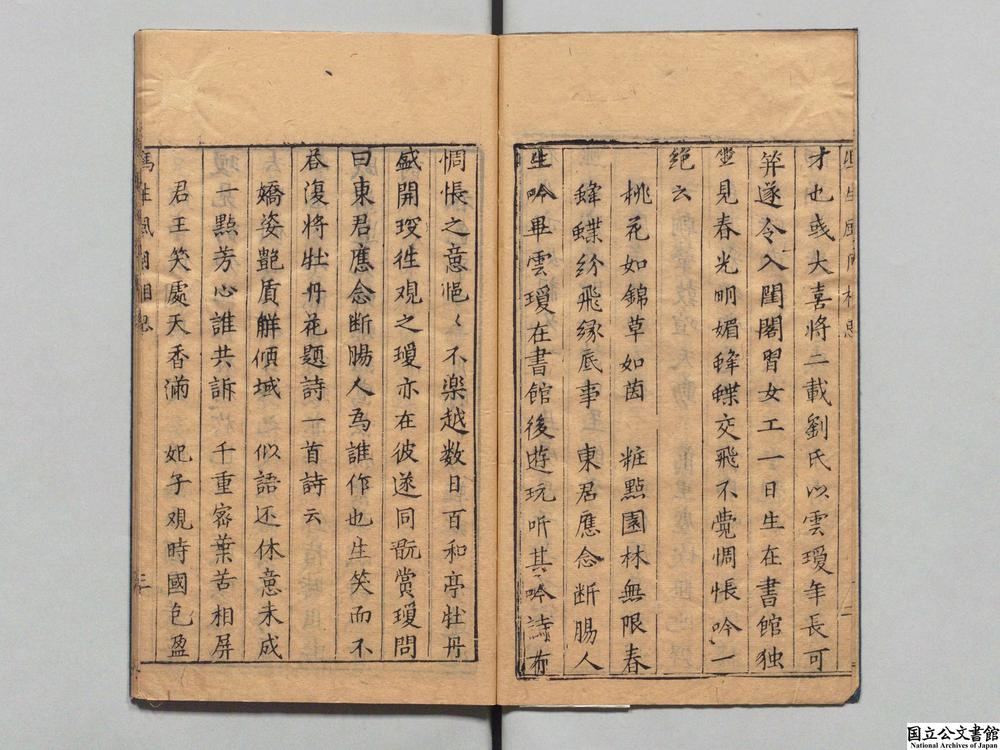 才也彧大喜將二載劉氏以雲瓊年長可
笄遂令入閨閣習女工一日生在書館獨
坐見春光明媚蜂蝶交飛不覺惆悵吟一
絶云
桃花如錦草如茵 粧點園林無限春
蜂蝶紛飛緣底事 東君應念斷腸人
生吟畢雲瓊在書館後遊玩听其吟詩有
惆悵之意悒〻不樂越数日百和亭牡丹
盛開琁往观之瓊亦在彼遂同翫賞瓊問
曰東君應念断腸人為誰作也生笑而不
荅復將牡丹花題詩一首詩云
嬌姿艶質觧傾城 似語还休意未成
一點芳心誰共訴 千重密葉苦相屏
君王笑處天香滿 妃子观時國色盈
馮生風月相思
三
国立公文書館
National Archives of Japan